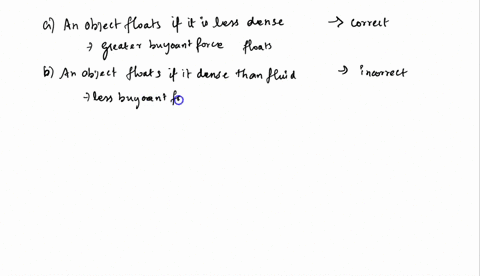 a) An object floats if it is less dense → correct
→ greater buyoant force floats
b) An object floats if it dense than fluid → incorrect
→ less buyoant fo